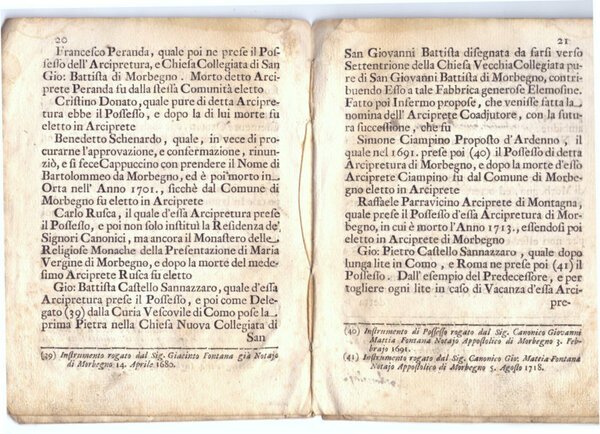 20
Francesco Peranda, quale poi ne prese il Pos-
sesso dell'Arcipretura, e Chiesa Collegiata di San
Gio: Battista di Morbegno. Morto detto Arci
prete Peranda fu dalla stessa Comunità eletto
Cristino Donato, quale pure di detta Arcipre-
tura ebbe il Possesso, e dopo la di lui morte fu
eletto in Arciprete
Benedetto Schenardo, quale, in vece di pro-
curarne l'approvazione, e confermazione, rinun-
ziò, e si fece Cappuccino con prendere il Nome di
Bartolommeo da Morbegno, ed è poi morto in
Orta nell' Anno 1701, sicchè dal Comune di
Morbegno fu eletto in Arciprete
Carlo Rusca, il quale d'essa Arcipretura prese
il Possesso, e poi non solo instituì la Residenza de'
Signori Canonici, ma ancora il Monastero delle
Religiose Monache della Presentazione di Maria
Vergine di Morbegno, e dopo la morte del mede-
simo Arciprete Rusca fu eletto
Gio: Battista Castello Sannazzaro, quale d'essa
Arcipretura prese il Possesso, e poi come Dele-
gato (39) dalla Curia Vescovile di Como pose la
prima Pietra nella Chiesa Nuova Collegiata di
San
(39) Instrumento rogato dal Sig. Giacinto Fontana già Notajo
di Morbegno 14. Aprile 1680.
21
San Giovanni Battista disegnata da farsi verso
Settentrione della Chiesa Vecchia Collegiata pu-
re di San Giovanni Battista di Morbegno, contri-
buendo Esso a tale Fabbrica generose Elemosine.
Fatto poi Infermo propose, che venisse fatta la
nomina dell'Arciprete Coadjutore, con la futu-
ra successione, che fu
Simone Ciampino Proposto d'Ardenno, il
quale nel 1691. prese poi (40) il Possesso di detta
Arcipretura di Morbegno, e dopo la morte d'esso
Arciprete Ciampino fu dal Comune di Morbe-
gno eletto in Arciprete
Raffaele Parravicino Arciprete di Montagna,
quale prese il Possesso d'essa Arcipretura di Mor-
begno, in cui è morto l'Anno 1713., essendosi poi
eletto in Arciprete di Morbegno
Gio: Pietro Castello Sannazzaro, quale dopo
lunga lite in Como, e Roma ne prese poi (41) il
Possesso. Dall'esempio del Predecessore, e per
togliere ogni lite in caso di Vacanza d'essa Arci-
pre-
(40) Instrumento rogato dal Sig. Canonico Giovanni
Mattia Fontana Notajo Appostolico di Morbegno 3. Feb-
brajo 1691.
(41) Instrumento rogato dal Sig. Canonico Gio. Mattia Fontana
Notajo Appostolico di Morbegno 5. Agosto 1718.